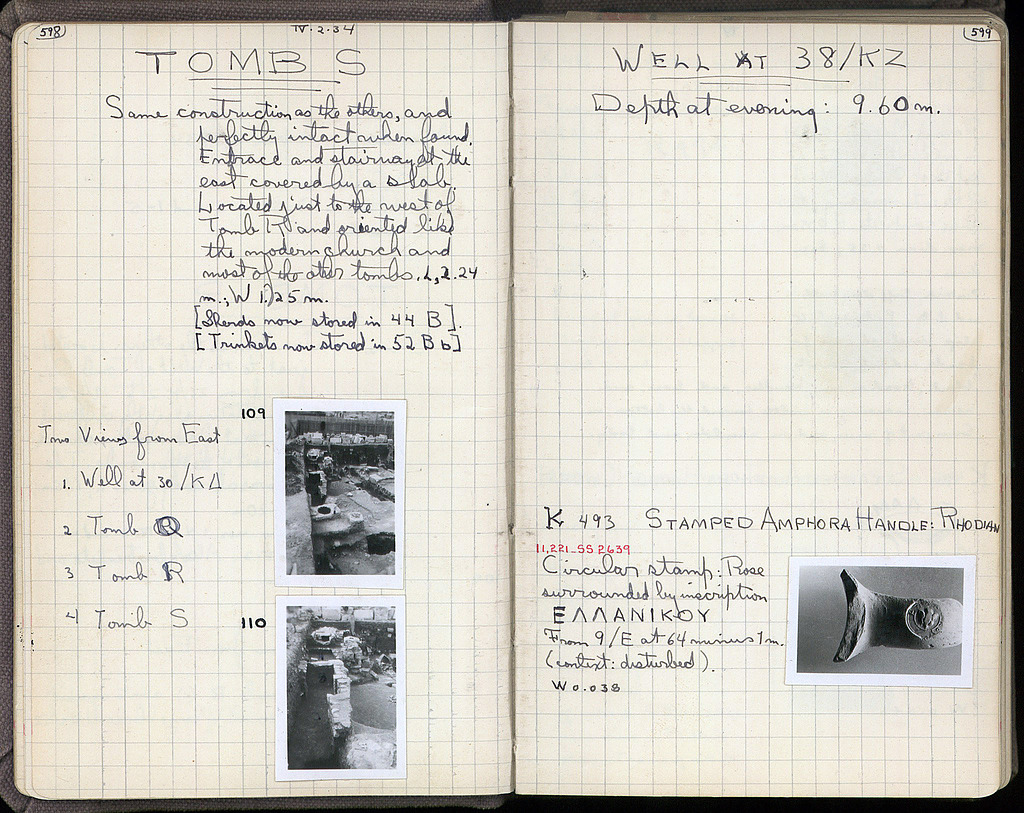 598
IV.2.34
TOMB S
Same construction as the others, and
perfectly intact when found.
Entrace and stairway at the
east covered by a slab.
Located just to the west of
Tomb and oriented like
the modern church and
most of the other tombs. L, 2.24
m.; W 1.25 m.
[Sherds now stored in 44 B].
[Trinkets now stored in 52 B b]
109
Two Views from East
1. Well at 30/ΚΔ
2 Tomb
3 Tomb R
4 Tomb S
110
599
WELL AT 38/KZ
Depth at evening: 9.60 m.
K 493 STAMPED AMPHORA HANDLE: RHODIAN
11,221_SS 2639
Circular stamp: Rose
surrounded by inscription
ΕΛΛΑΝΙΚΟΥ
From 9/E at 64 minus 1 m.
(context: disturbed).
W 0.038